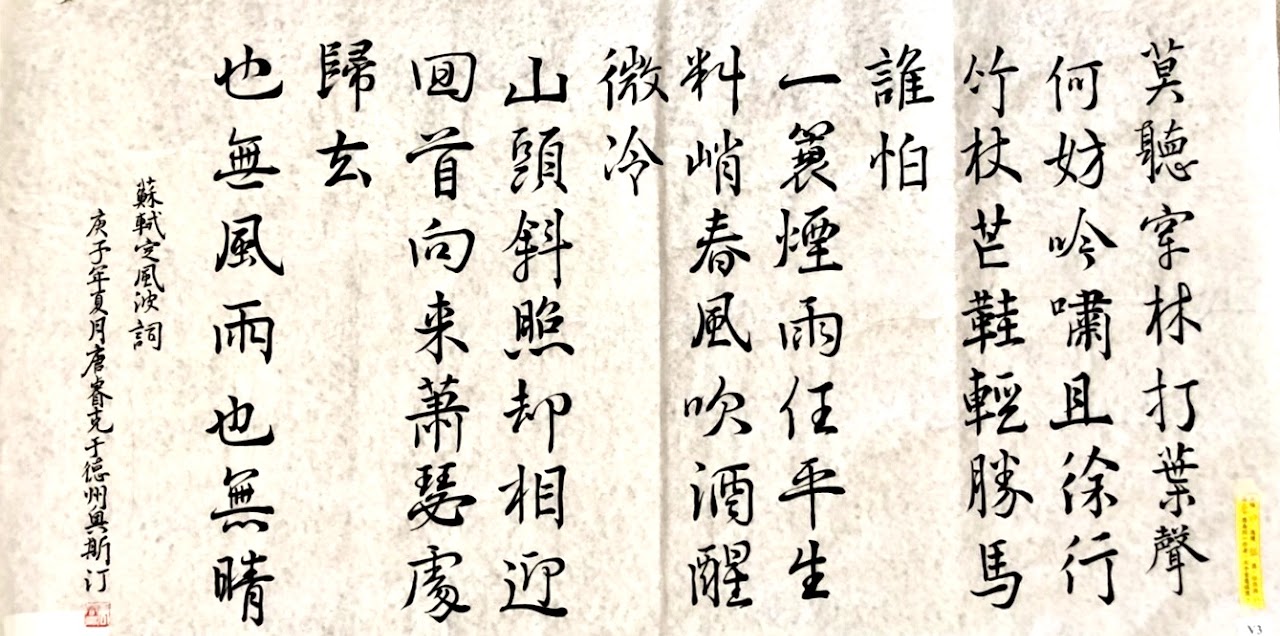 莫聽穿林打葉聲
何妨吟嘯且徐行
竹杖芒鞋輕勝馬
誰怕
一蓑煙雨任平生
料峭春風吹酒醒
微冷
山頭斜照却相迎
回首向来蕭瑟處
歸去
也無風雨也無晴
蘇軾定風波詞
庚子年夏月唐睿克于德州奥斯汀
V3